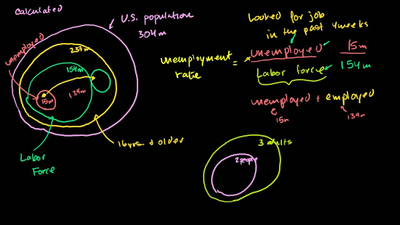 Calculated
U.S. population
304m
Looked for job
in the past 4 weeks
unemployed
234m
154m
139m
15m
unemployment
rate
=
unemployed
15m
Labor force
154m
unemployed + employed
15m
139m
Labor
Force
16yrs + older
3 adults
2 people